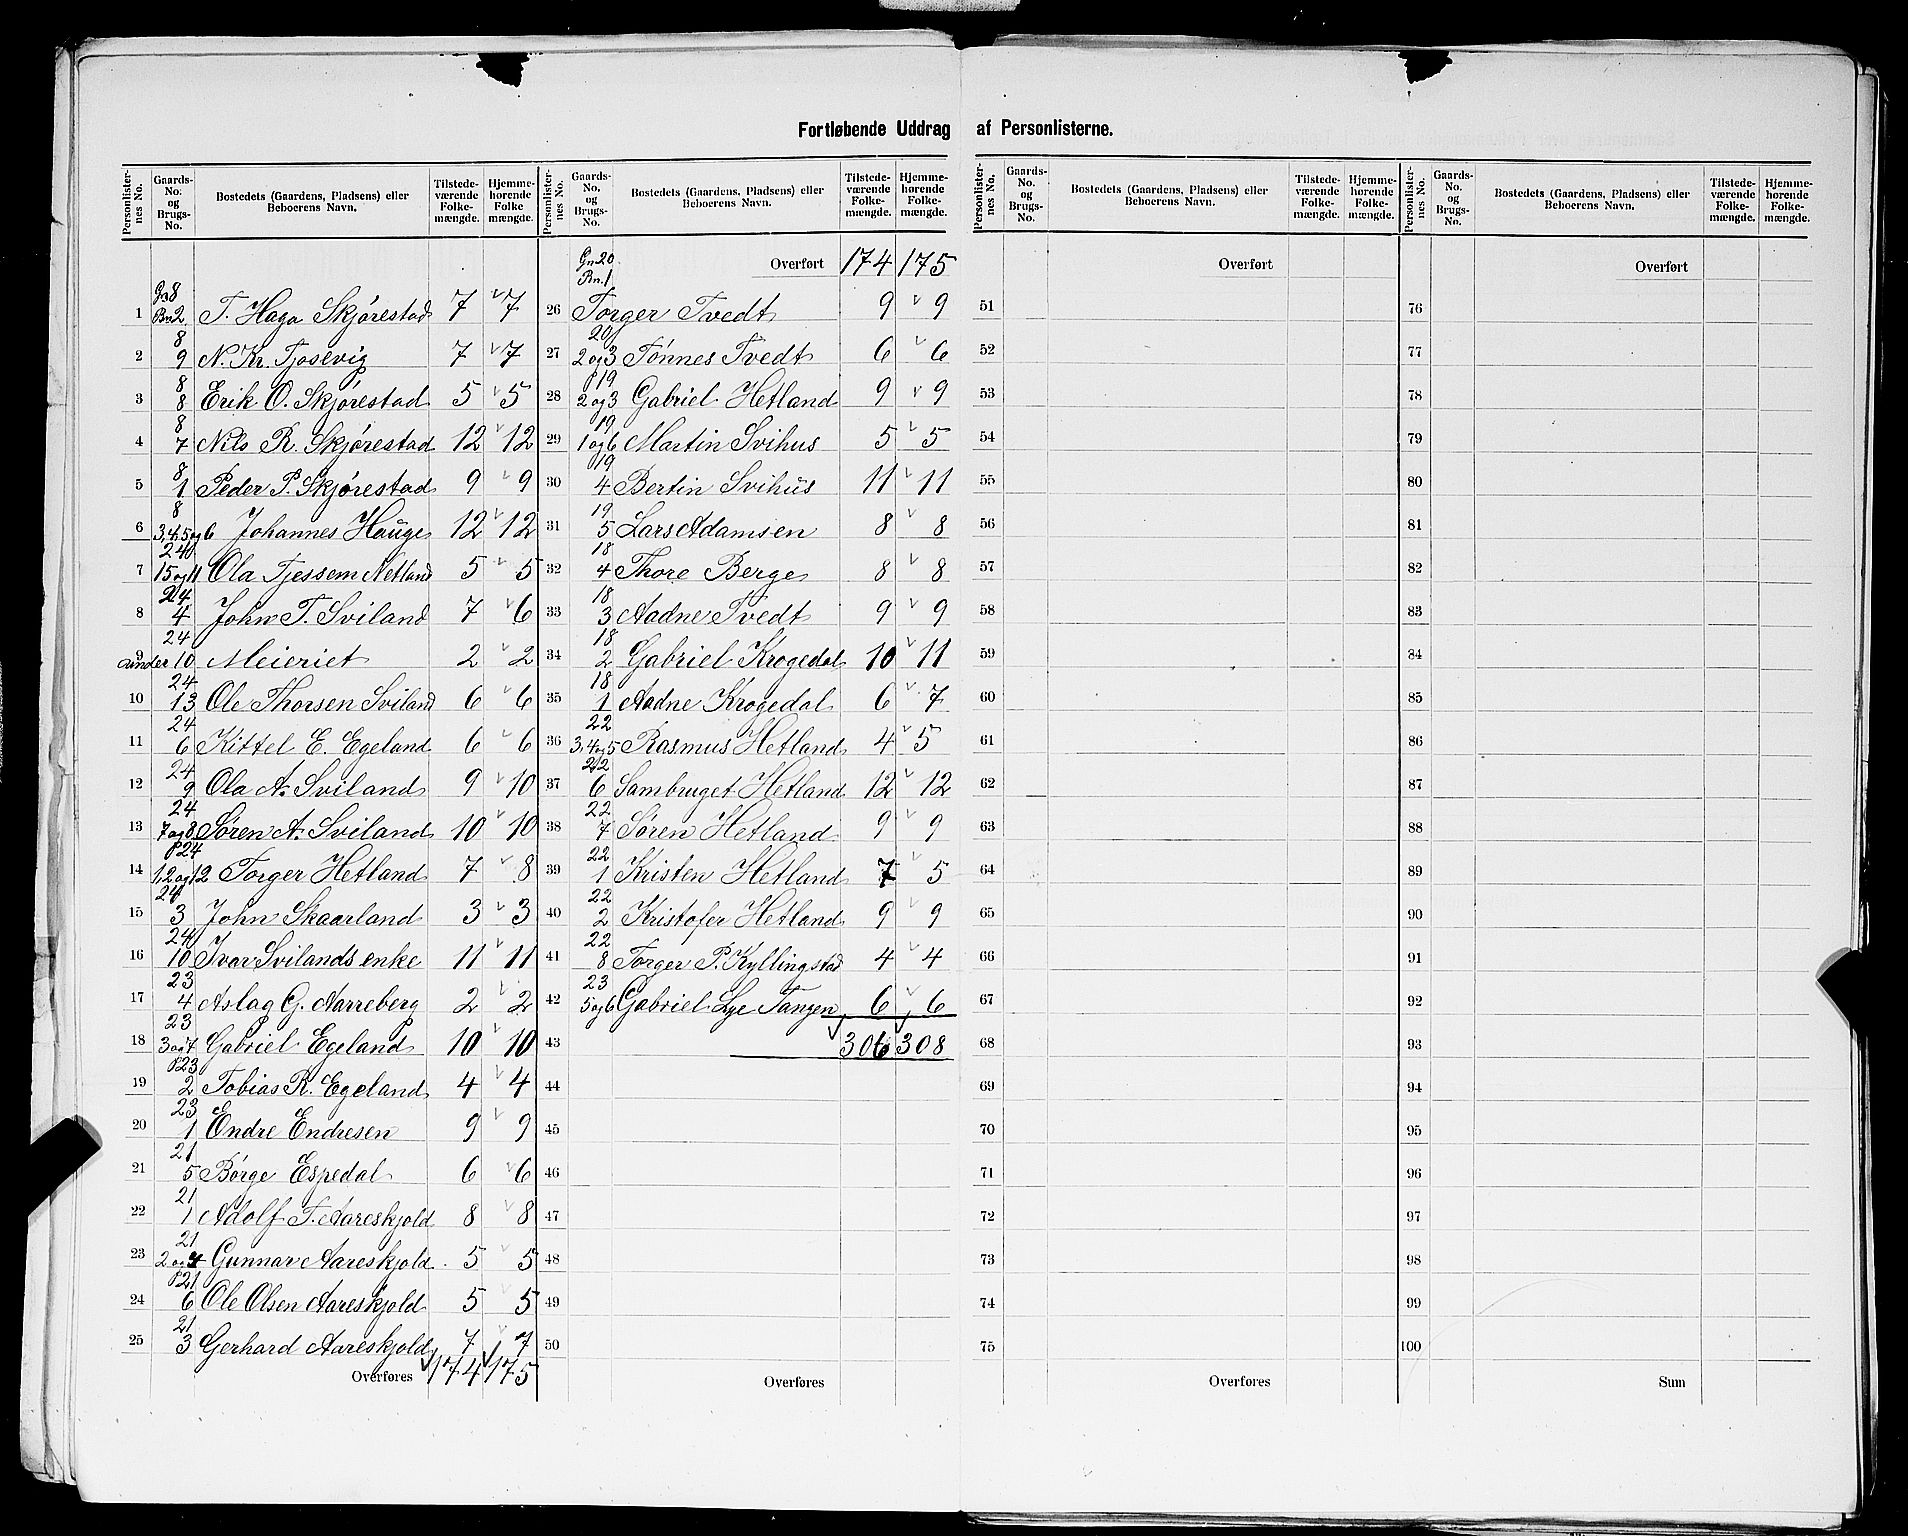 Fortløbende Uddrag af Personlisterne.
Personlisternes No. | Gaards-No. og Brugs-No. | Bostedets (Gaardens, Pladsens) eller Beboerens Navn. | Tilstedeværende Folkemængde. | Hjemmehørende Folkemængde.
1 | Gn 8 Bn 2 | T. Haga Skjørestad | 7 | 7
2 | 8 9 | N. Kr. Tjosevig | 7 | 7
3 | 8 8 | Erik O. Skjørestad | 5 | 5
4 | 8 7 | Nils R. Skjørestad | 12 | 12
5 | 8 1 | Peder P. Skjørestad | 9 | 9
6 | 8 3,4,5 og 6 | Johannes Hauge | 12 | 12
7 | 24 15 og 11 | Ola Tjessem Netland | 5 | 5
8 | 24 4 | John T. Sviland | 7 | 6
9 | 24 under 10 | Meieriet | 2 | 2
10 | 24 13 | Ole Thorsen Sviland | 6 | 6
11 | 24 6 | Kittel E. Egeland | 6 | 6
12 | 24 9 | Ola A. Sviland | 9 | 10
13 | 24 7 og 8 | Søren A. Sviland | 10 | 10
14 | 24 1,2 og 12 | Torger Hetland | 7 | 8
15 | 24 3 | John Skaarland | 3 | 3
16 | 24 10 | Ivar Svilands enke | 11 | 11
17 | 23 4 | Aslag G. Aarreberg | 2 | 2
18 | 23 3 og 7 | Gabriel Egeland | 10 | 10
19 | 23 2 | Tobias R. Egeland | 4 | 4
20 | 23 1 | Endre Endresen | 9 | 9
21 | 21 5 | Børge Espedal | 6 | 6
22 | 21 1 | Adolf T. Aareskjold | 8 | 8
23 | 21 2 og 4 | Gunnar Aareskjold | 5 | 5
24 | 21 6 | Ole Olsen Aareskjold | 5 | 5
25 | 21 3 | Gerhard Aareskjold | 7 | 7
Overføres | 174 | 175
Personlisternes No. | Gaards-No. og Brugs-No. | Bostedets (Gaardens, Pladsens) eller Beboerens Navn. | Tilstedeværende Folkemængde. | Hjemmehørende Folkemængde.
Overført | 174 | 175
26 | Gn 20 Bn. 1 | Torger Tvedt | 9 | 9
27 | 20 2 og 3 | Tønnes Tvedt | 6 | 6
28 | 19 2 og 3 | Gabriel Hetland | 9 | 9
29 | 19 1 og 6 | Martin Svihus | 5 | 5
30 | 19 4 | Bertin Svihus | 11 | 11
31 | 19 5 | Lars Adamsen | 8 | 8
32 | 18 4 | Thore Berge | 8 | 8
33 | 18 3 | Aadne Tvedt | 9 | 9
34 | 18 2 | Gabriel Krogedal | 10 | 11
35 | 18 1 | Aadne Krogedal | 6 | 7
36 | 22 3,4 og 5 | Rasmus Hetland | 4 | 5
37 | 22 6 | Sambruget Hetland | 12 | 12
38 | 22 7 | Søren Hetland | 9 | 9
39 | 22 1 | Kristen Hetland | 7 | 5
40 | 22 2 | Kristofer Hetland | 9 | 9
41 | 22 8 | Torger P. Kyllingstad | 4 | 4
42 | 23 5 og 6 | Gabriel Lye Tangen | 6 | 6
43 | 306 | 308
44
45
46
47
48
49
50
Overføres
Personlisternes No. | Gaards-No. og Brugs-No. | Bostedets (Gaardens, Pladsens) eller Beboerens Navn. | Tilstedeværende Folkemængde. | Hjemmehørende Folkemængde.
Overført
51
52
53
54
55
56
57
58
59
60
61
62
63
64
65
66
67
68
69
70
71
72
73
74
75
Overføres
Personlisternes No. | Gaards-No. og Brugs-No. | Bostedets (Gaardens, Pladsens) eller Beboerens Navn. | Tilstedeværende Folkemængde. | Hjemmehørende Folkemængde.
Overført
76
77
78
79
80
81
82
83
84
85
86
87
88
89
90
91
92
93
94
95
96
97
98
99
100
Sum